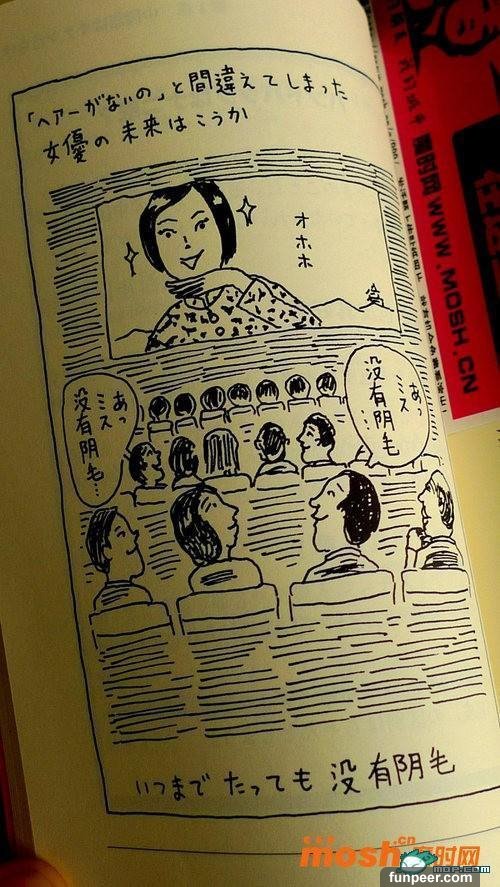 「ヘアーがないの」と間違えてしまった
女優の未来はこうか
オホホ
あっ
ミス
没有阴毛…
あっ
ミス
没有阴毛…
いつまでたっても 没有阴毛
WWW.MOSH.CN
mosh.cn
MOP.COM
funpeer.com